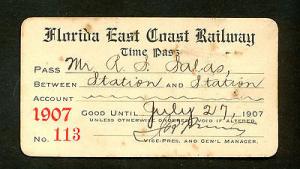 Florida East Coast Railway
Time Pass
PASS Mr. R. S. Salas,
BETWEEN Station AND Station
ACCOUNT
1907 GOOD UNTIL July 27, 1907
UNLESS OTHERWISE ORDERED. VOID IF ALTERED.
No. 113
VICE-PRES. AND GEN'L MANAGER.